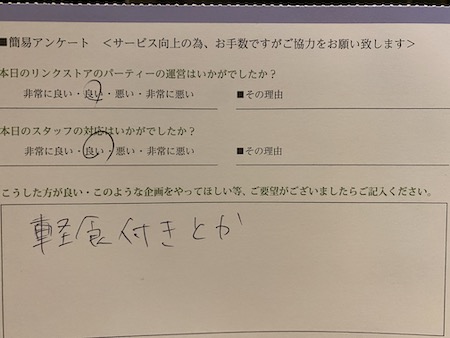 ■簡易アンケート ＜サービス向上の為、お手数ですがご協力をお願い致します＞
本日のリンクストアのパーティーの運営はいかがでしたか？
非常に良い・良い・悪い・非常に悪い ■その理由
本日のスタッフの対応はいかがでしたか？
非常に良い・良い・悪い・非常に悪い ■その理由
こうした方が良い・このような企画をやってほしい等、ご要望がございましたらご記入ください。
軽食付きとか